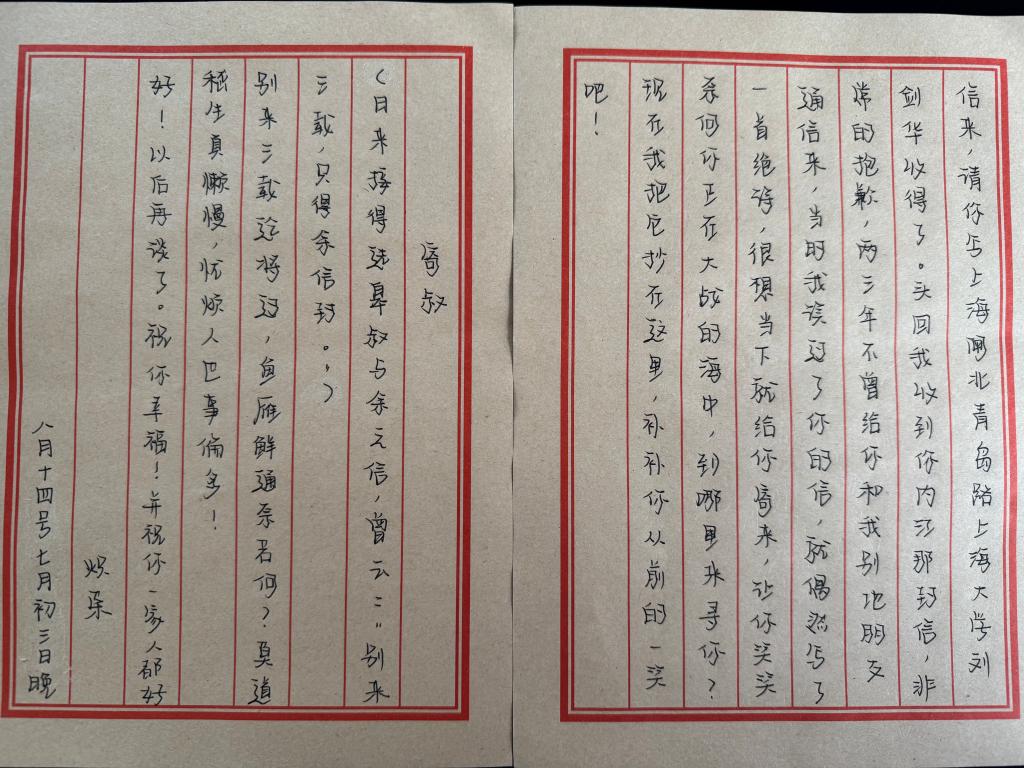 信来，请你写上海闸北青岛路上海大学刘
剑华收得了。头回我收到你内江那封信，非
常的抱歉，两三年不曾给你和我别地朋友
通信来，当时我读过了你的信，就偶然写了
一首绝诗，很想当下就给你寄来，让你笑笑
奈何你正在大战的海中，到哪里来寻你？
现在我把它抄在这里，补补你从前的一笑
吧！
寄叔
（日来接得述皋叔与余之信，曾云："别来
三载，只得余信封。"）
别来三载迄将过，鱼雁鲜通奈若何？莫道
嵇生真懒慢，忧烦人巴事偏多！
好！以后再谈了。祝你幸福！并祝你一家人都好
八月十四号七月初三日晚